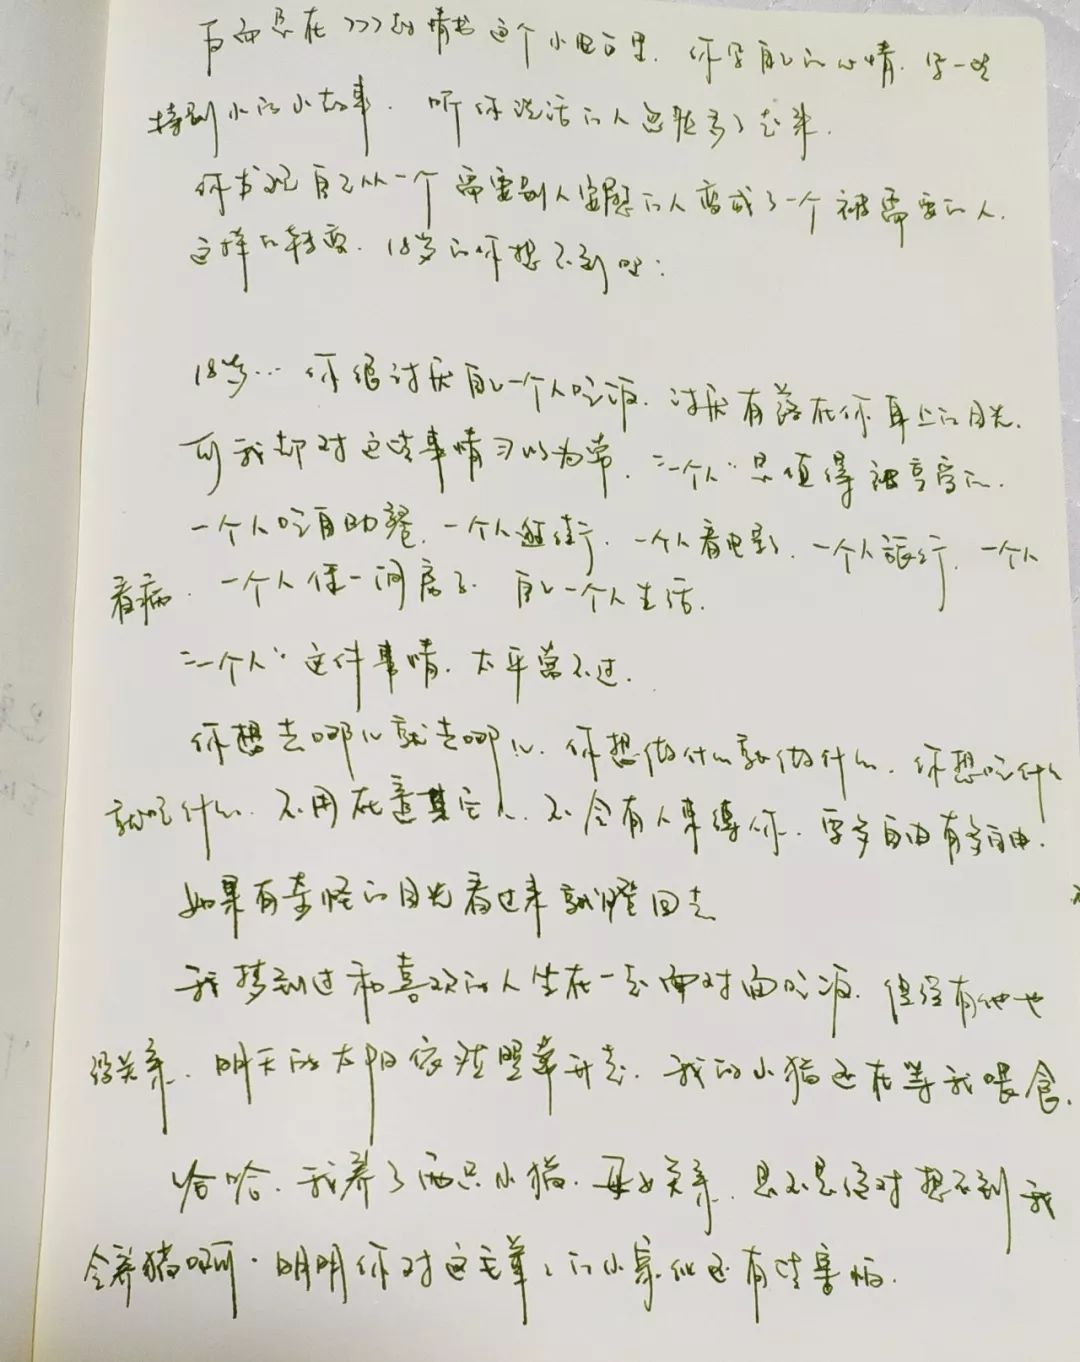 在 >>> 的情书这个小电台里. 你写自己的心情. 写一些
特别小的小故事. 听你说话的人忽然多了起来.
你发现自己从一个需要别人安慰的人变成了一个被需要的人.
这样的转变. 18岁的你想不到吧:
18岁… 你很讨厌自己一个人吃饭. 讨厌有落在你身上的目光.
可我却对这些事情习以为常. “一个人”是值得被享受的.
一个人吃自助餐. 一个人逛街. 一个人看电影. 一个人旅行. 一个人
看病. 一个人住一间房子. 自己一个人生活.
“一个人”这件事情. 太平常不过.
你想去哪儿就去哪儿. 你想做什么就做什么. 你想吃什么
就吃什么. 不用在意其它人. 不会有人来缚你. 要多自由有多自由.
如果有奇怪的目光看过来就瞪回去
我梦到过和喜欢的人坐在一起面对面吃饭. 但没有他也
没关系. 明天的太阳依然照常升起. 我的小猫还在等我喂食.
哈哈. 我养了两只小猫. 母女关系. 是不是绝对想不到我
会养猫啊. 明明你对这毛茸茸的小家伙还有些害怕.